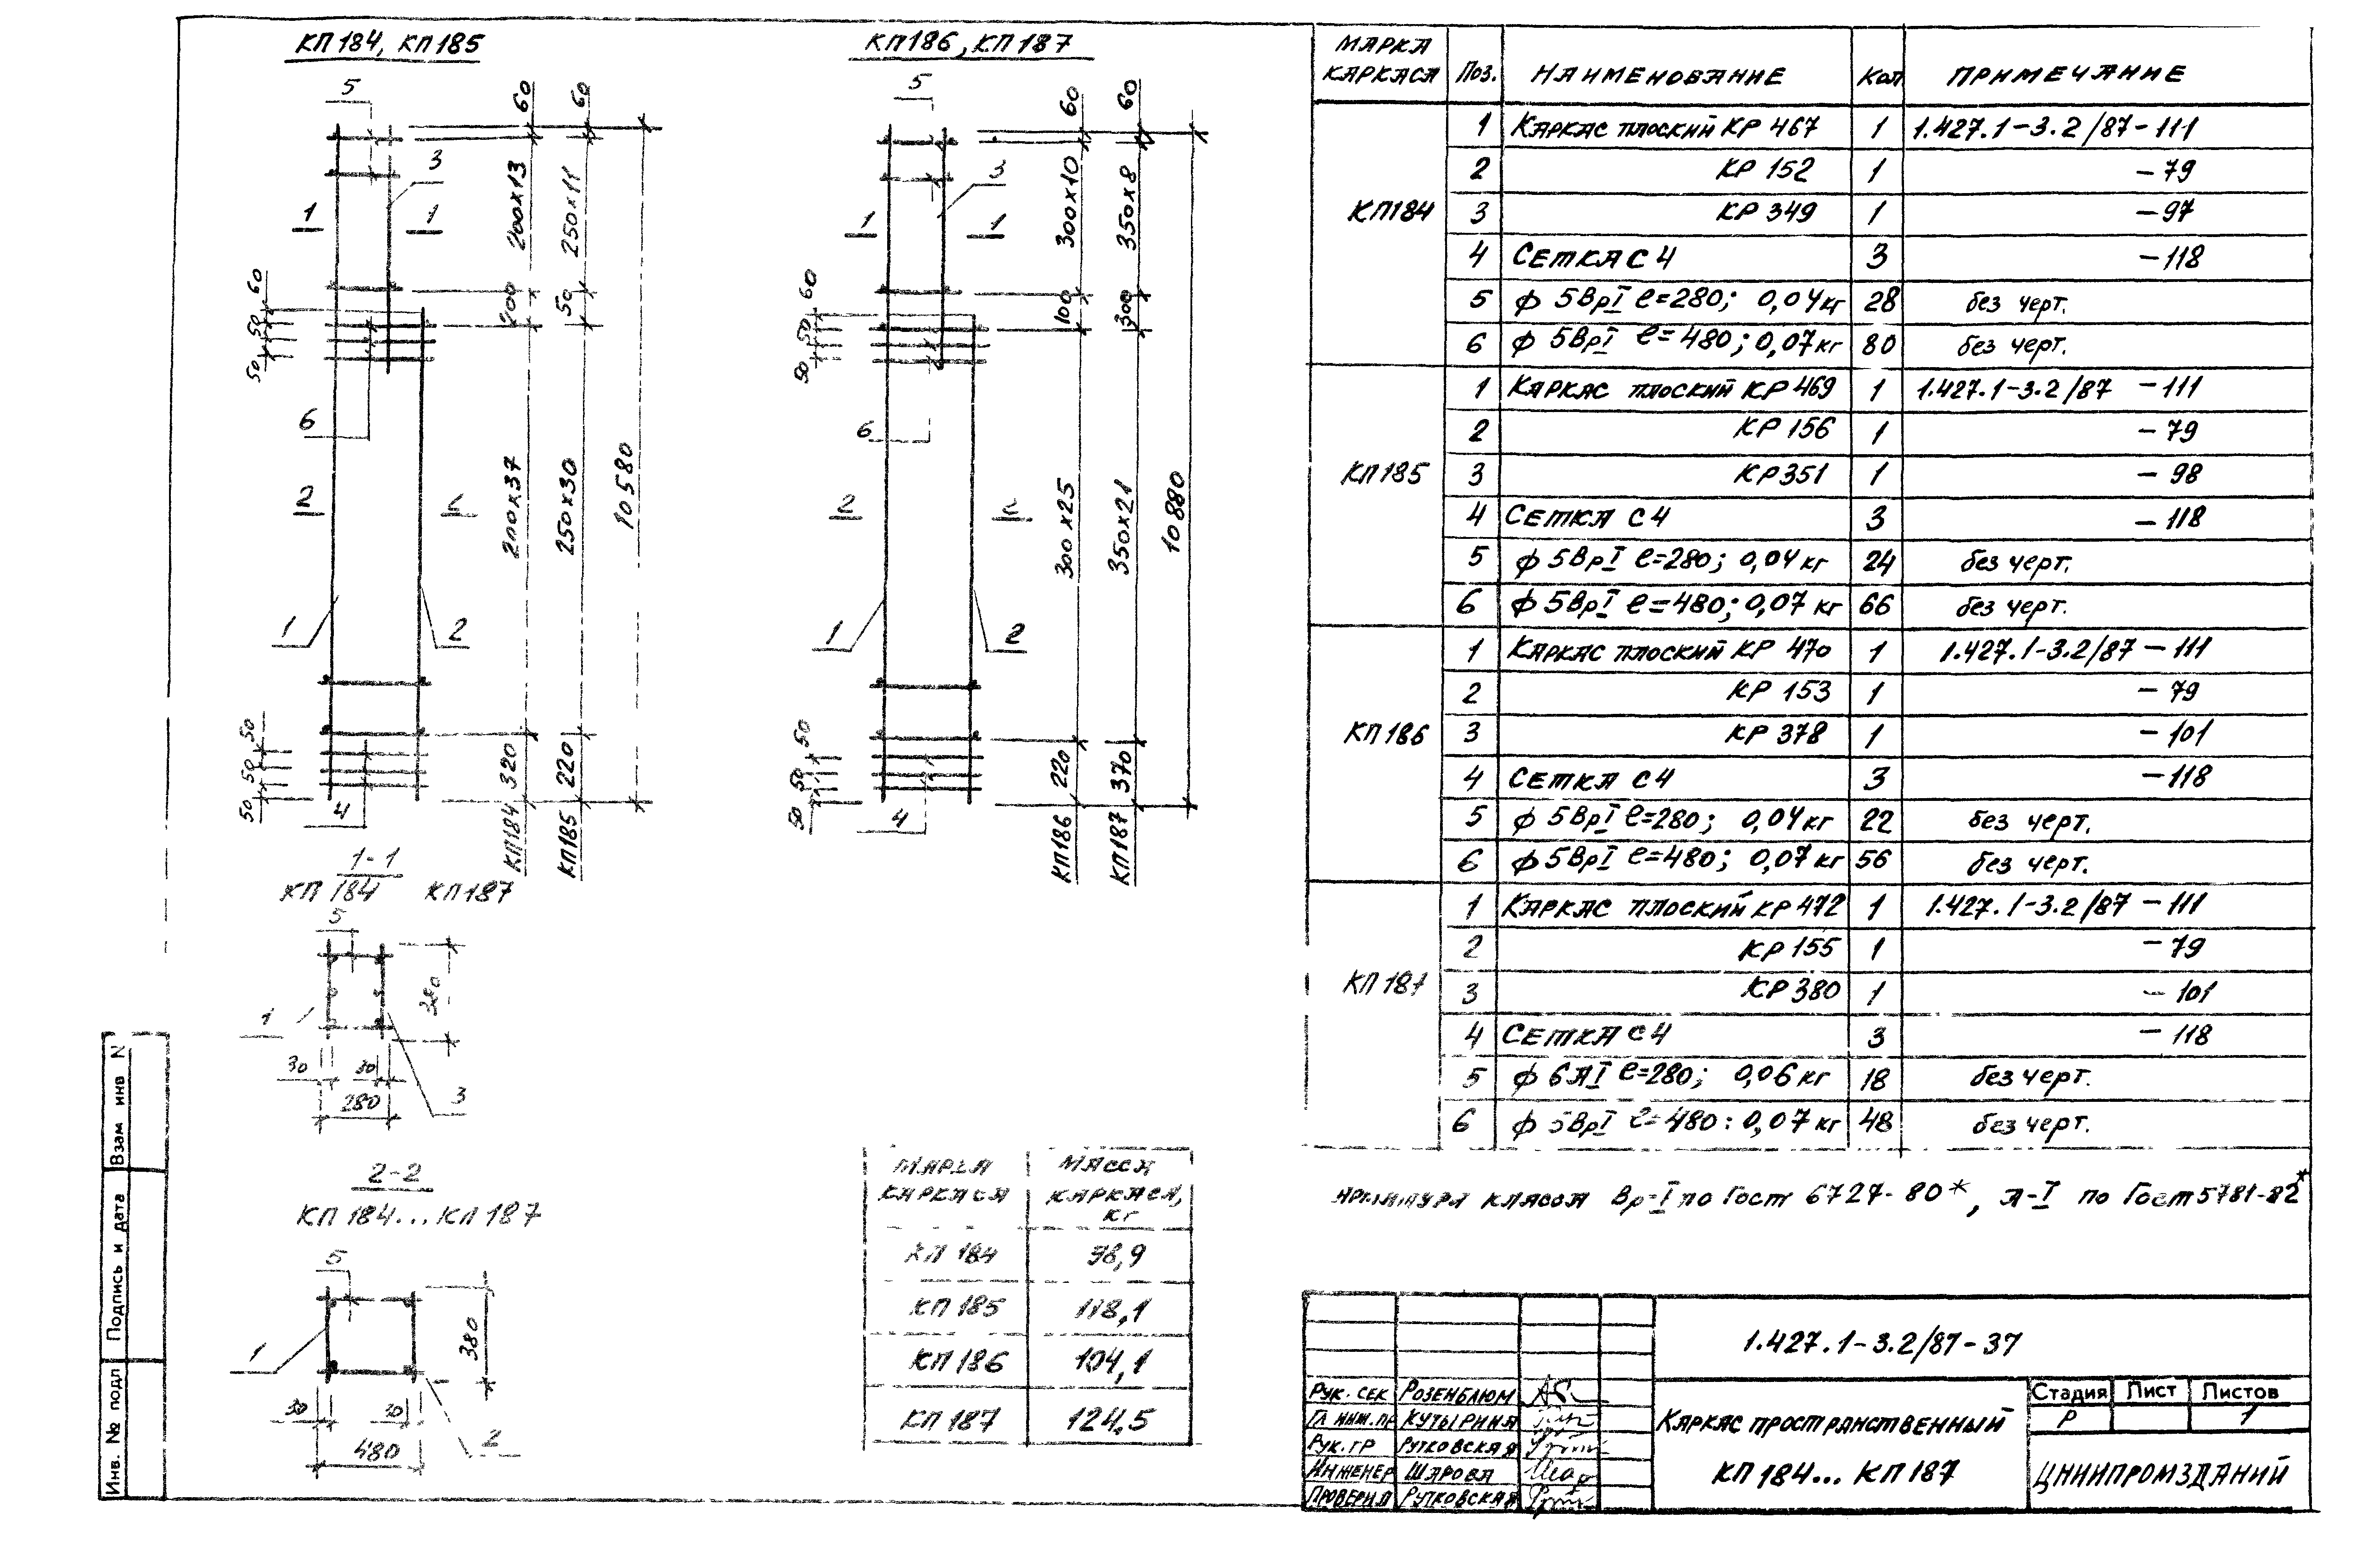 КП184, КП185
5
3
1
1
60
50
50
6
2
1
2
50
50
50
4
60
200х13
200
200х37
320
КП184
60
250х11
50
250х30
220
КП185
10580
КП186, КП187
5
3
1
1
60
50
50
6
2
1
2
50
50
50
4
60
300х10
100
300х25
220
КП186
60
350х8
300
350х21
370
КП187
10880
1-1
КП 184 КП187
5
1
30
30
280
3
2-2
КП 184... КП 187
5
1
380
30
30
480
2
Марка каркаса
Масса каркаса, кг
КП 184 98,9
КП 185 118,1
КП 186 104,1
КП 187 124,5
Марка каркаса Поз. Наименование Кол Примечание
КП184
1 Каркас плоский КР 467 1 1.427.1-3.2/87-111
2 КР 152 1 -79
3 КР 349 1 -97
4 Сетка С4 3 -118
5 ф 5ВрI ℓ=280; 0,04кг 28 без черт.
6 ф 5ВрI ℓ=480; 0,07кг 80 без черт.
КП185
1 Каркас плоский КР 469 1 1.427.1-3.2/87 -111
2 КР 156 1 -79
3 КР351 1 -98
4 Сетка С4 3 -118
5 ф 5ВрI ℓ=280; 0,04кг 24 без черт.
6 ф 5ВрI ℓ=480; 0,07 кг 66 без черт.
КП186
1 Каркас плоский КР 470 1 1.427.1-3.2/87 -111
2 КР 153 1 -79
3 КР 378 1 -101
4 Сетка С4 3 -118
5 ф 5ВрI ℓ=280; 0,04кг 22 без черт.
6 ф 5ВрI ℓ=480; 0,07кг 56 без черт.
КП 187
1 Каркас плоский КР 472 1 1.427.1-3.2/87 -111
2 КР 155 1 -79
3 КР 380 1 -101
4 Сетка С4 3 -118
5 ф 6АI ℓ=280; 0,06кг 18 без черт.
6 ф 5ВрI ℓ=480; 0,07кг 48 без черт.
Арматура класса Вр-I по Гост 6727-80*, А-I по Гост 5781-82*
1.427.1-3.2/87-37
Рук. сек Розенблюм
Гл инж.пр Кутырина
Рук. гр Рутковская
Инженер Шарова
Проверил Рутковская
Каркас пространственный
КП 184... КП 187
Стадия Лист Листов
Р 1
ЦНИИПРОМЗДАНИЙ
Взам инв N
Подпись и дата
Инв. № подл